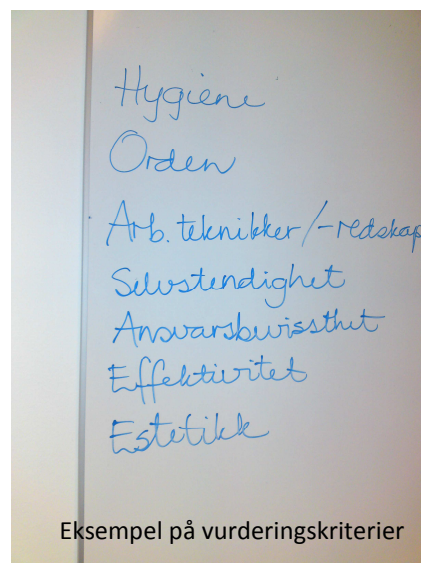 Hygiene
Orden
Arb. teknikker/-redskap
Selvstendighet
Ansvarsbevissthet
Effektivitet
Estetikk
Eksempel på vurderingskriterier